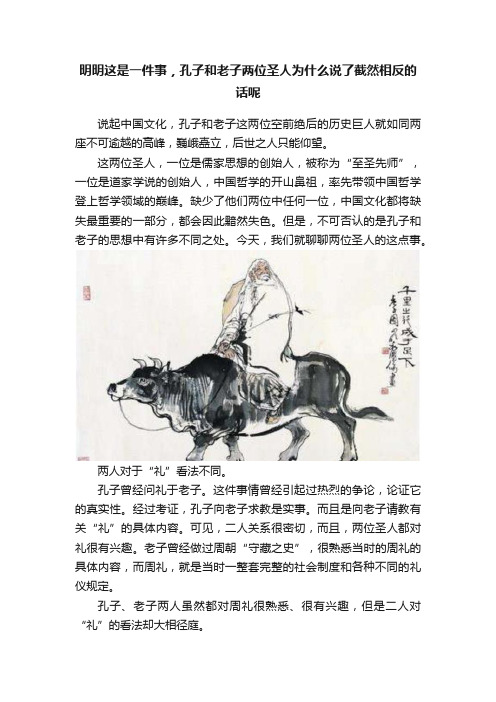 明明这是一件事，孔子和老子两位圣人为什么说了截然相反的
话呢
说起中国文化，孔子和老子这两位空前绝后的历史巨人就如同两
座不可逾越的高峰，巍峨矗立，后世之人只能仰望。
这两位圣人，一位是儒家思想的创始人，被称为“至圣先师”，
一位是道家学说的创始人，中国哲学的开山鼻祖，率先带领中国哲学
登上哲学领域的巅峰。缺少了他们两位中任何一位，中国文化都将缺
失最重要的一部分，都会因此黯然失色。但是，不可否认的是孔子和
老子的思想中有许多不同之处。今天，我们就聊聊两位圣人的这点事。
千里之行成于足下
两人对于“礼”看法不同。
孔子曾经问礼于老子。这件事情曾经引起过热烈的争论，论证它
的真实性。经过考证，孔子向老子求教是实事。而且是向老子请教有
关“礼”的具体内容。可见，二人关系很密切，而且，两位圣人都对
礼很有兴趣。老子曾经做过周朝“守藏之史”，很熟悉当时的周礼的
具体内容，而周礼，就是当时一整套完整的社会制度和各种不同的礼
仪规定。
孔子、老子两人虽然都对周礼很熟悉、很有兴趣，但是二人对
“礼”的看法却大相径庭。